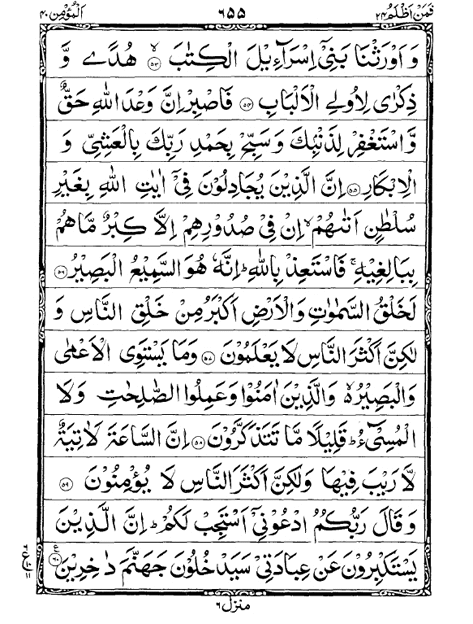 فمن اظلم ٢٤ ٦٥٥ المؤمن ٤٠
وَ اَوْرَثْنَا بَنِيْۤ اِسْرَآءِيْلَ الْكِتٰبَ ۙ﴿۵۳﴾ هُدًى وَّ
ذِكْرٰى لِاُولِي الْاَلْبَابِ ﴿۵۴﴾ فَاصْبِرْ اِنَّ وَعْدَ اللّٰهِ حَقٌّ
وَّاسْتَغْفِرْ لِذَنْۢبِكَ وَ سَبِّحْ بِحَمْدِ رَبِّكَ بِالْعَشِيِّ وَ
الْاِبْكَارِ ﴿۵۵﴾ اِنَّ الَّذِيْنَ يُجَادِلُوْنَ فِيْۤ اٰيٰتِ اللّٰهِ بِغَيْرِ
سُلْطٰنٍ اَتٰىهُمْ ۙ اِنْ فِيْ صُدُوْرِهِمْ اِلَّا كِبْرٌ مَّا هُمْ
بِبَالِغِيْهِ ۚ فَاسْتَعِذْ بِاللّٰهِ ؕ اِنَّهٗ هُوَ السَّمِيْعُ الْبَصِيْرُ ﴿۵۶﴾
لَخَلْقُ السَّمٰوٰتِ وَ الْاَرْضِ اَكْبَرُ مِنْ خَلْقِ النَّاسِ وَ
لٰكِنَّ اَكْثَرَ النَّاسِ لَا يَعْلَمُوْنَ ﴿۵۷﴾ وَمَا يَسْتَوِي الْاَعْمٰى
وَالْبَصِيْرُ ۙ۬ وَالَّذِيْنَ اٰمَنُوْا وَعَمِلُوا الصّٰلِحٰتِ وَلَا
الْمُسِيْٓءُ ؕ قَلِيْلًا مَّا تَتَذَكَّرُوْنَ ﴿۵۸﴾ اِنَّ السَّاعَةَ لَاٰتِيَةٌ
لَّا رَيْبَ فِيْهَا وَلٰكِنَّ اَكْثَرَ النَّاسِ لَا يُؤْمِنُوْنَ ﴿۵۹﴾
وَ قَالَ رَبُّكُمُ ادْعُوْنِيْۤ اَسْتَجِبْ لَكُمْ ؕ اِنَّ الَّذِيْنَ
يَسْتَكْبِرُوْنَ عَنْ عِبَادَتِيْ سَيَدْخُلُوْنَ جَهَنَّمَ دٰخِرِيْنَ ﴿۶۰﴾
منزل ٦